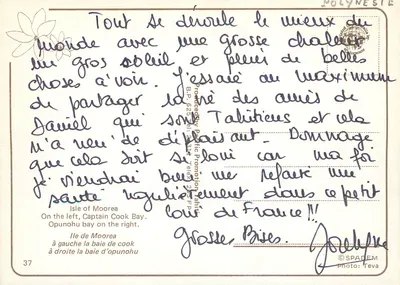 POLYNESIE
Tout se déroule le mieux du
monde avec une grosse chaleur
un gros soleil et pleins de belles
choses à voir. J'essaie au maximum
de partager la vie des amis de
Daniel qui sont Tahitiens et cela
n'a rien de déplaisant. Dommage
que cela soit si loin car ma foi
je viendrai bien me refaire une
santé régulièrement dans ce petit
coin de France!!!
Grosses Bises.
Isle of Moorea
On the left, Captain Cook Bay.
Opunohu bay on the right.
Ile de Moorea
à gauche la baie de cook
à droite la baie d'opunohu
37
© SPADEM
Photo: Teva